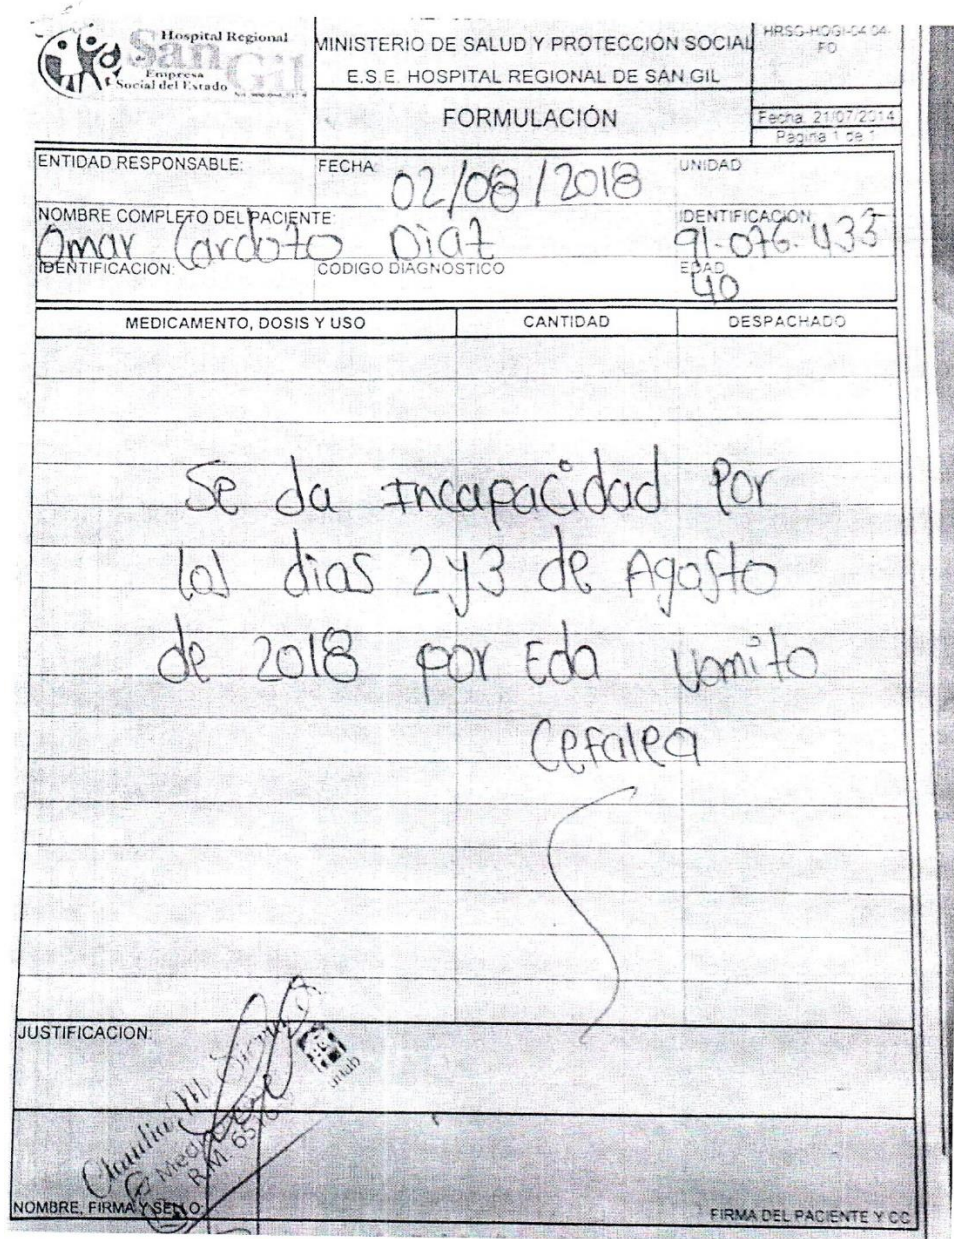 Hospital Regional
San Gil
Empresa
Social del Estado
MINISTERIO DE SALUD Y PROTECCIÓN SOCIAL
E.S.E. HOSPITAL REGIONAL DE SAN GIL
FORMULACIÓN
HRSG-HOGI-04 04-
FO
Fecha: 21/07/2014
Página 1 de 1
ENTIDAD RESPONSABLE:
FECHA: 02/08/2018
UNIDAD
NOMBRE COMPLETO DEL PACIENTE:
Omar Cardozo Diaz
IDENTIFICACION:
91.076.433
IDENTIFICACION:
CODIGO DIAGNOSTICO
EDAD
40
MEDICAMENTO, DOSIS Y USO
CANTIDAD
DESPACHADO
Se da Incapacidad Por
los dias 2y3 de Agosto
de 2018 por Eda Vomito
Cefalea
JUSTIFICACION:
Claudia M.
unab
NOMBRE, FIRMA Y SELLO:
FIRMA DEL PACIENTE Y CC